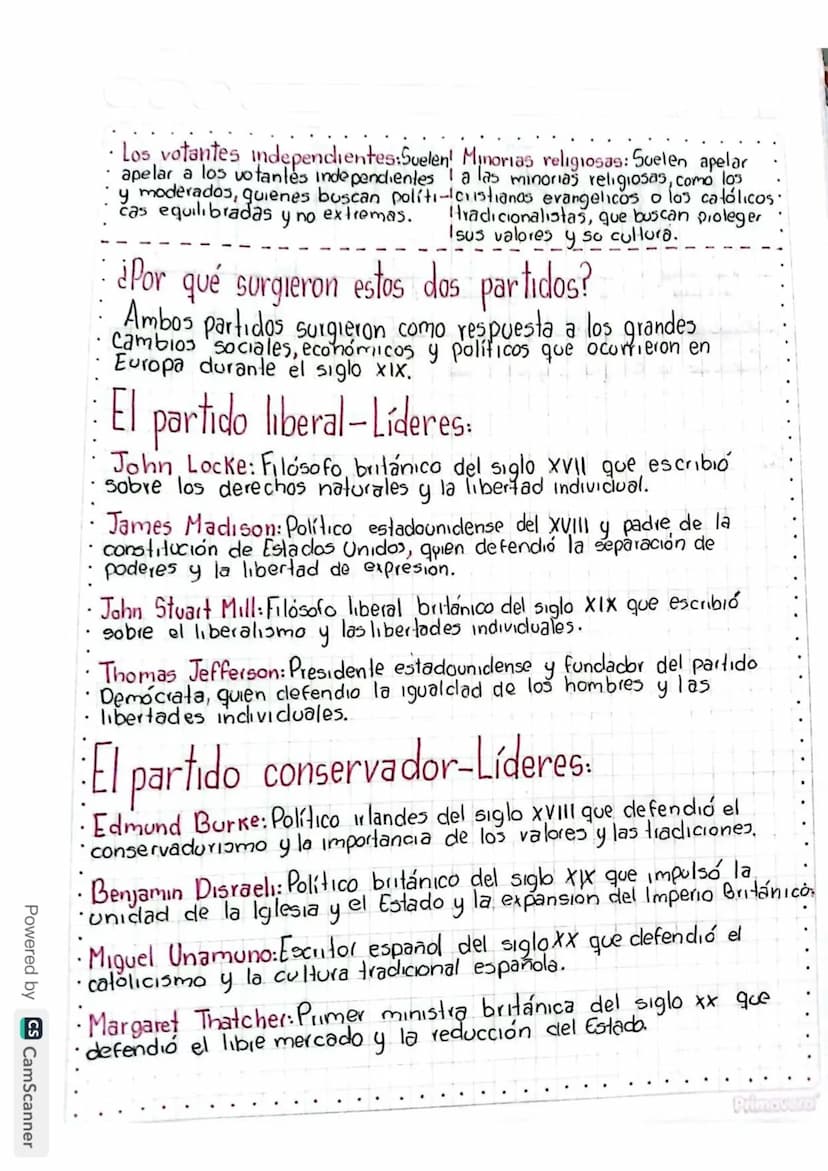 · Los votantes independientes: Suelen
apelar a los votantes independientes
y moderados, quienes buscan políti-
cas equilibradas y no extremas.
Minorias religiosas: Suelen apelar
a las minorias religiosas, como los
cristianos evangelicos o los católicos
tradicionalistas, que buscan proleger
sus valores y so cultura.
¿Por qué surgieron estos dos partidos?
Ambos partidos surgieron como respuesta a los grandes
cambios sociales, económicos y políticos que ocurrieron en
Europa durante el siglo XIX.
El partido liberal-Líderes:
John Locke: Filósofo británico del siglo XVII que escribió
sobre los derechos naturales y la libertad individual.
James Madison: Político estadounidense del XVIII y padre de la
constitución de Estados Unidos, quien defendió la separación de
poderes y la libertad de expresion.
John Stuart Mill: Filósofo liberal británico del siglo XIX que escribió
sobre el liberalismo y las libertades individuales.
Thomas Jefferson: Presidente estadounidense y fundador del partido
Demócrata, quien defendio la igualdad de los hombres y las
libertades individuales.
El partido conservador-Líderes:
Edmund Burke: Político irlandes del siglo XVIII que defendió el
conservadurismo y la importancia de los valores y las tradiciones.
Benjamin Disraeli: Político británico del siglo XIX que impulsó la
unidad de la Iglesia y el Estado y la expansion del Imperio Británico.
Miguel Unamuno: Escritor español del siglo XX que defendió el
catolicismo y la cultura tradicional española.
Margaret Thatcher: Primer ministra británica del siglo xx que
defendió el libre mercado y la reducción del Estado.
Primavera
Powered by CS CamScanner